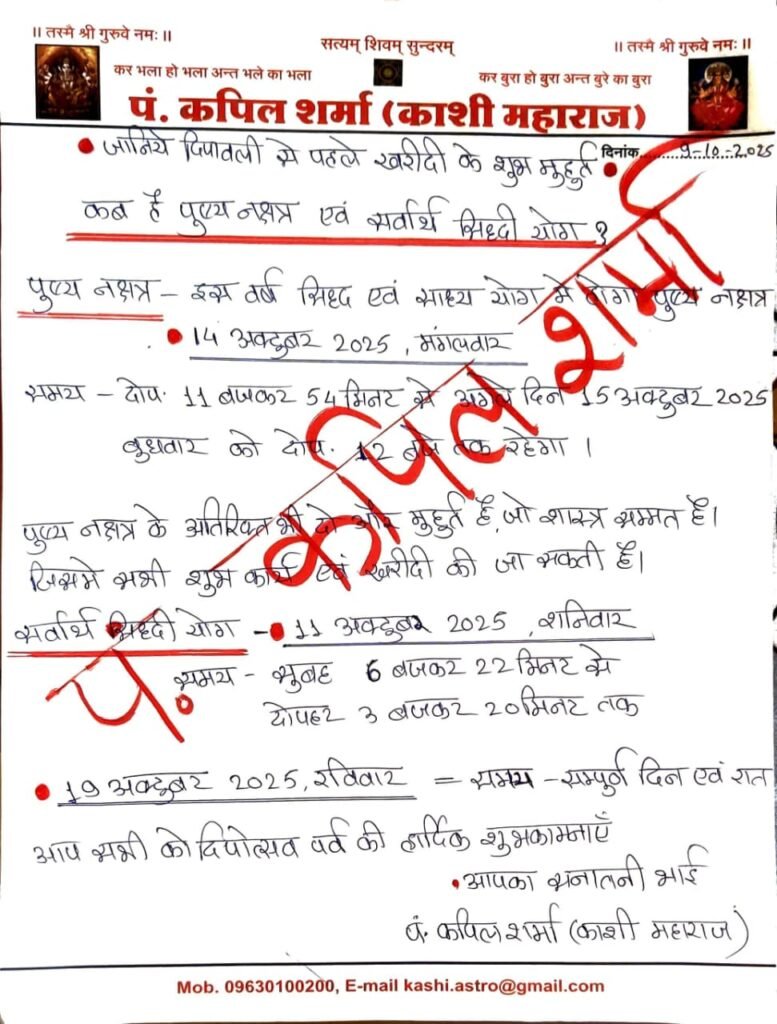 ॥ तस्मै श्री गुरुवे नमः ॥
सत्यम् शिवम् सुन्दरम्
॥ तस्मै श्री गुरुवे नमः ॥
कर भला हो भला अन्त भले का भला
कर बुरा हो बुरा अन्त बुरे का बुरा
पं. कपिल शर्मा (काशी महाराज)
दिनांक.........9-10-2025
• जानिये दिपावली से पहले खरीदी के शुभ मुहुर्त •
कब है पुष्य नक्षत्र एवं सर्वार्थ सिध्दी योग ?
पुष्य नक्षत्र - इस वर्ष सिध्द एवं साध्य योग मे होगा पुष्य नक्षत्र
• 14 अक्टुबर 2025, मंगलवार
समय - दोप. 11 बजकर 54 मिनट से अगले दिन 15 अक्टुबर 2025
बुधवार को दोप. 12 बजे तक रहेगा ।
पुष्य नक्षत्र के अतिरिक्त भी दो और मुहुर्त है, जो शास्त्र सम्मत है।
जिसमे सभी शुभ कार्य एवं खरीदी की जा सकती है।
सर्वार्थ सिध्दी योग - • 11 अक्टुबर 2025, शनिवार
समय - सुबह 6 बजकर 22 मिनट से
दोपहर 3 बजकर 20 मिनट तक
• 19 अक्टुबर 2025, रविवार = समय - सम्पुर्ण दिन एवं रात
आप सभी को दिपोत्सव पर्व की हार्दिक शुभकामनाएँ
• आपका सनातनी भाई
पं. कपिल शर्मा (काशी महाराज)
पं. कपिल शर्मा
Mob. 09630100200, E-mail kashi.astro@gmail.com